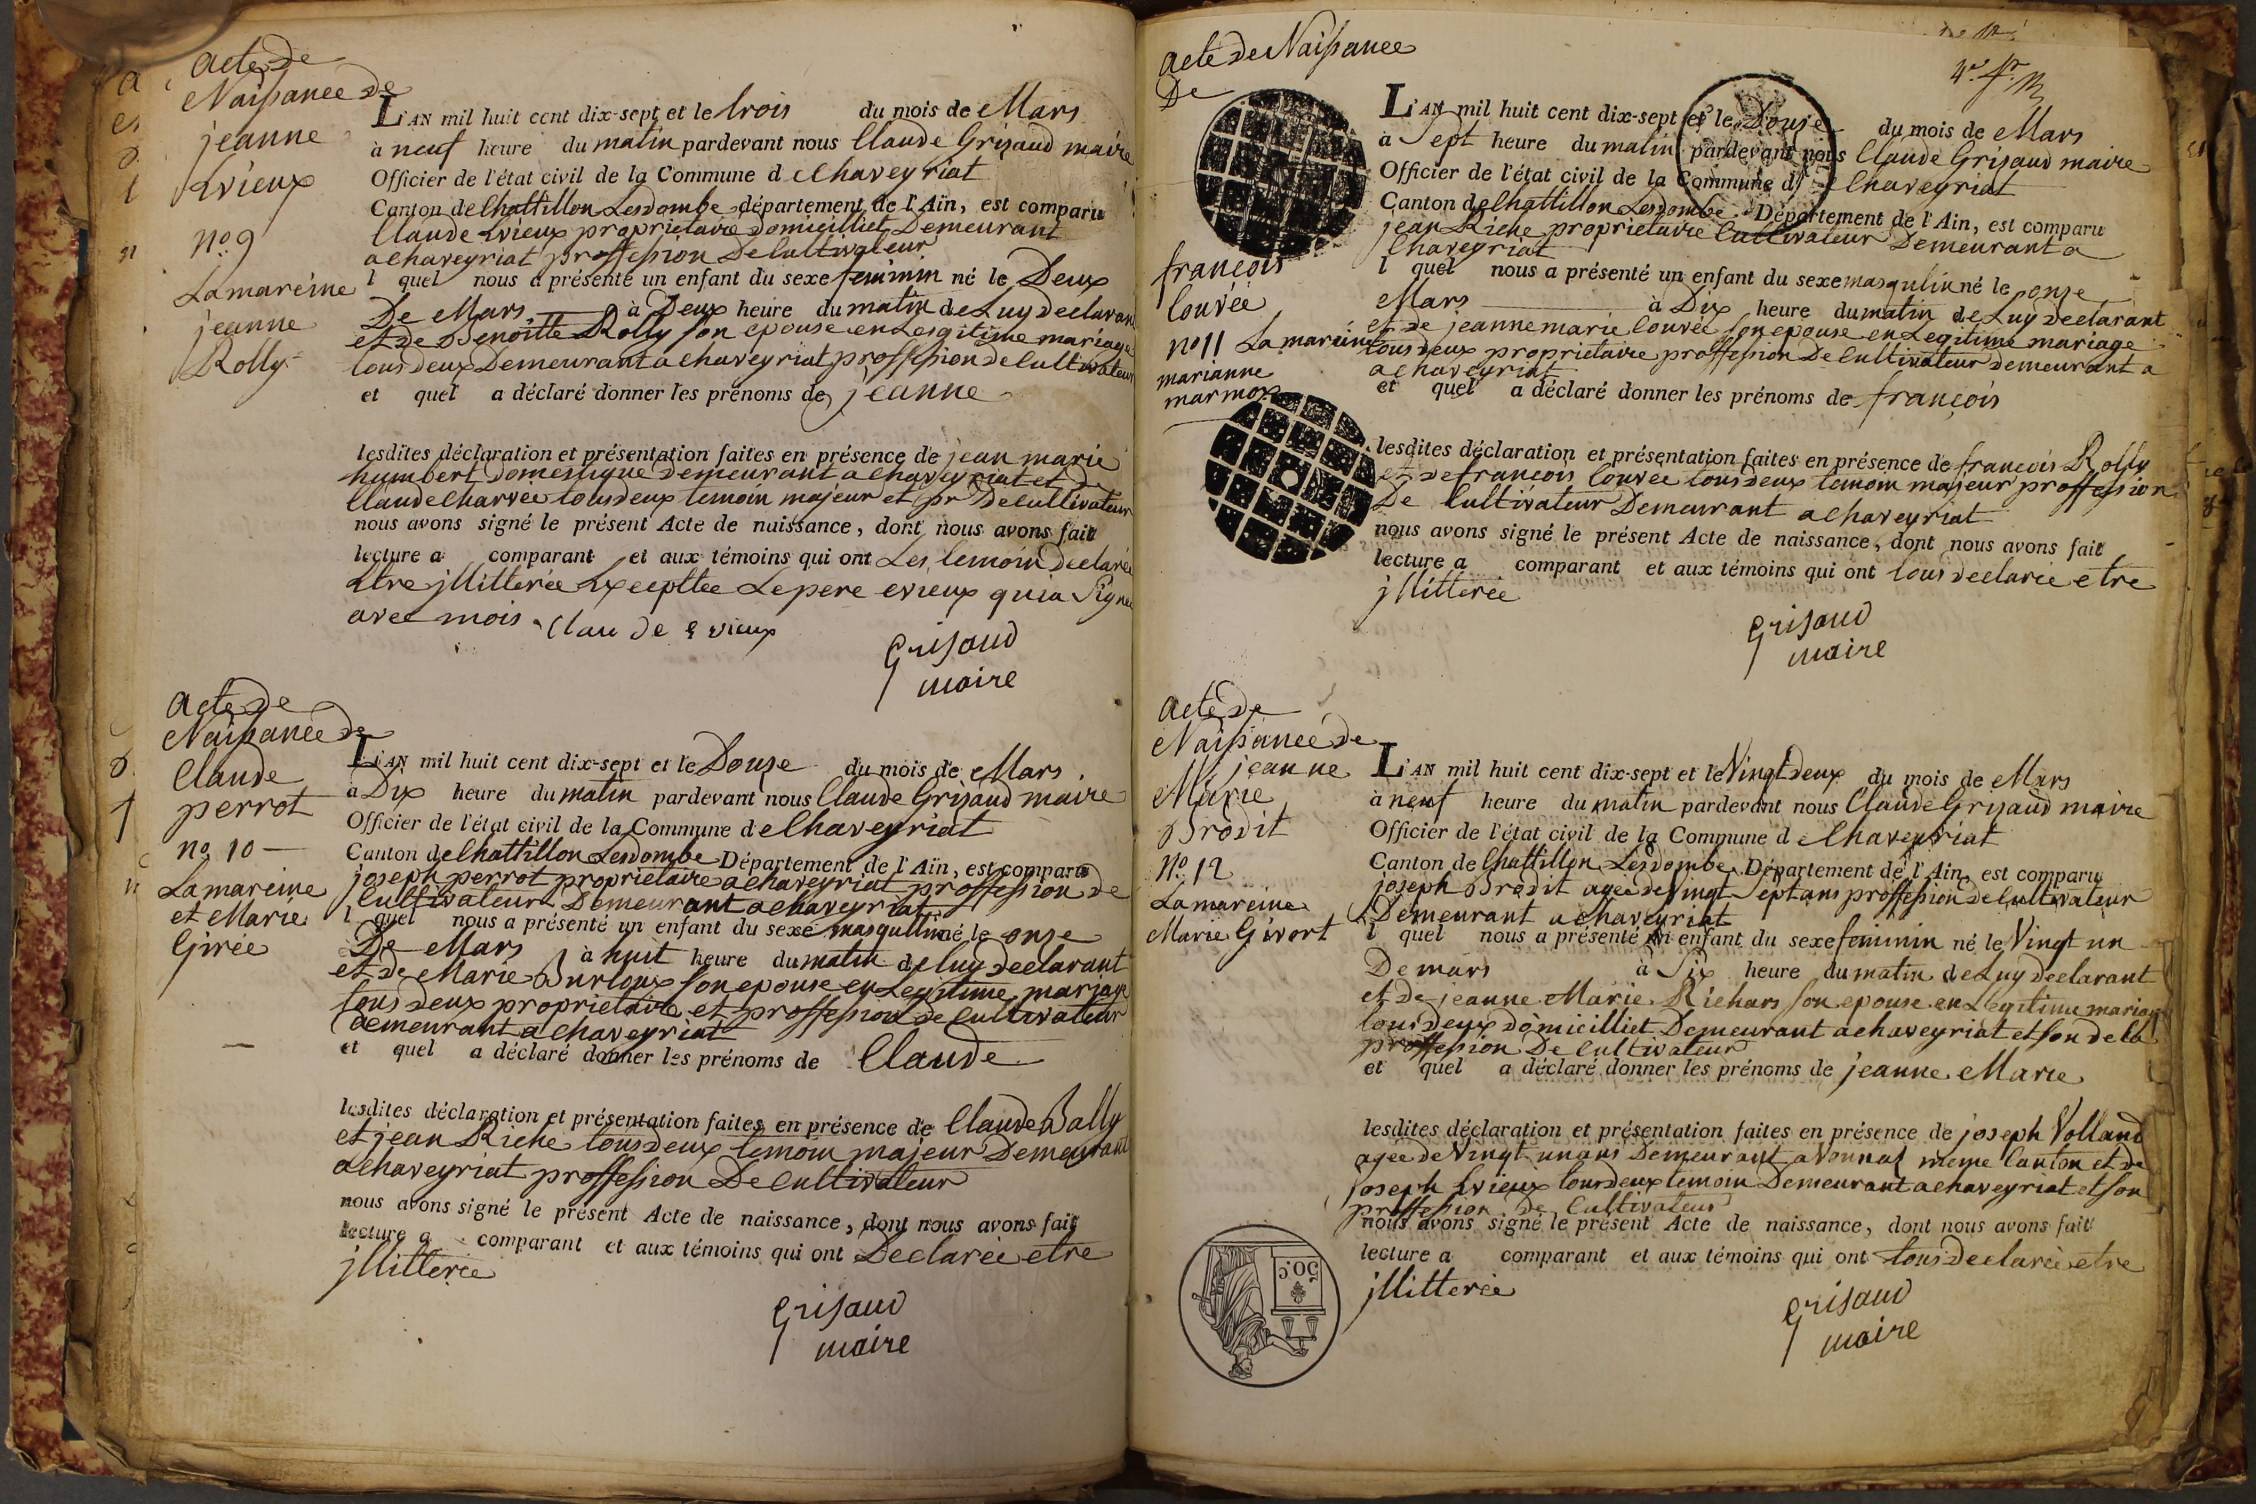 acte de
Naissance de
jeanne
Evieux
no. 9
La mareine
jeanne
Rolly
L'AN mil huit cent dix-sept et le trois du mois de Mars
à neuf heure du matin pardevant nous Claude Grisaud maire
Officier de l'état civil de la Commune d echaveyriat
Canton de Chattillon Lesdombe département de l'Ain, est comparu
Claude Evieux proprietaire domicilliet Demeurant
a chaveyriat proffession De Cultivateur
l quel nous a présenté un enfant du sexe feminin né le Deux
De Mars à Deux heure du matin de Luy declarant
et de Benoitte Rolly son epouse en Lesgitime mariage
tous deux Demeurant a chaveyriat proffession de Cultivateur
et quel a déclaré donner les prénoms de jeanne
lesdites déclaration et présentation faites en présence de jean marie
humbert Domestique demeurant a chaveyriat et de
Claude Charvee tous deux temoin majeur et pr De Cultivateur
nous avons signé le présent Acte de naissance, dont nous avons fait
lecture a comparant et aux témoins qui ont Les temoin declarée
Etre jllitterée Exceptee Le pere evieux qui a Signé
avec mois Clau de evieux
Grisaud
maire
acte de
Naissance de
Claude
perrot
no. 10
La mareine
et Marie
Girée
L'AN mil huit cent dix-sept et le Douze du mois de Mars
à Dix heure du matin pardevant nous Claude Grisaud maire
Officier de l'état civil de la Commune d echaveyriat
Canton de Chattillon Lesdombe Département de l'Ain, est comparu
joseph perrot proprietaire a chaveyriat proffession de
Cultivateur Demeurant a chaveyriat
l quel nous a présenté un enfant du sexe masqullin né le onze
De Mars à huit heure du matin de Luy declarant
et de Marie Burloux son epouse en Legitime mariage
tous deux proprietaire et proffession de Cultivateur
demeurant a chaveyriat
et quel a déclaré donner les prénoms de Claude
lesdites déclaration et présentation faites en présence de Claude Bally
et jean Riche tous deux temoin majeur Demeurant
a chaveyriat proffession De Cultivateur
nous avons signé le présent Acte de naissance, dont nous avons fait
lecture a comparant et aux témoins qui ont Declarée etre
jllitterée
Grisaud
maire
acte de Naissance
De
françois
Couvée
no 11 La mareine
marianne
marmon
L'AN mil huit cent dix-sept et le Douze du mois de Mars
à Sept heure du matin pardevant nous Claude Grisaud maire
Officier de l'état civil de la Commune d echaveyriat
Canton de Chattillon Lesdombe Département de l'Ain, est comparu
jean Riche proprietaire Cultivateur Demeurant a
Chaveyriat
l quel nous a présenté un enfant du sexe masqulin né le onze
Mars à Dix heure du matin de Luy declarant
et de jeanne marie Couvée son epouse en Legitime mariage
tous deux proprietaire proffession De Cultivateur demeurant a
a chaveyriat
et quel a déclaré donner les prénoms de françois
lesdites déclaration et présentation faites en présence de françois Rolly
et de françois Couvée tous deux temoin majeur proffession
De Cultivateur Demeurant a chaveyriat
nous avons signé le présent Acte de naissance, dont nous avons fait
lecture a comparant et aux témoins qui ont tous declarée etre
jllitterée
Grisaud
maire
acte de
Naissance de
jeanne
Marie
Brodit
No. 12
La mareine
Marie Givort
L'AN mil huit cent dix-sept et le Vingt deux du mois de Mars
à neuf heure du matin pardevant nous Claude Grisaud maire
Officier de l'état civil de la Commune d echaveyriat
Canton de Chattillon Lesdombe Département de l'Ain, est comparu
joseph Brodit agee de Vingt Sept ans proffession de Cultivateur
Demeurant a chaveyriat
l quel nous a présenté un enfant du sexe feminin né le Vingt un
De mars à Six heure du matin de Luy declarant
et de jeanne Marie Richars son epouse en Legitime mariage
tous deux domicilliet Demeurant a chaveyriat et son de la
proffession De Cultivateur
et quel a déclaré donner les prénoms de jeanne Marie
lesdites déclaration et présentation faites en présence de joseph Volland
agée de Vingt un ans Demeurant a Vonnas meme Canton et de
joseph Evieux tous deux temoin Demeurant a chaveyriat et son
proffession de Cultivateur
nous avons signé le présent Acte de naissance, dont nous avons fait
lecture a comparant et aux témoins qui ont tous declarée etre
jllitterée
Grisaud
maire
50c.